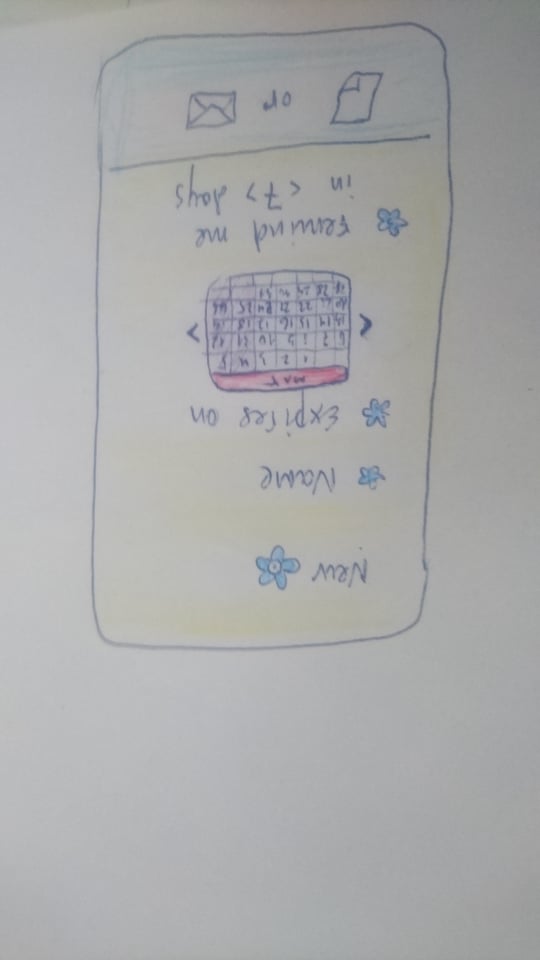 New
Name
Expires on
MAY
1 2 3 4 5
6 7 8 9 10 11 12
< 13 14 15 16 17 18 19 >
20 21 22 23 24 25 26
27 28 29 30 31
Remind me
in < 7 > days
or